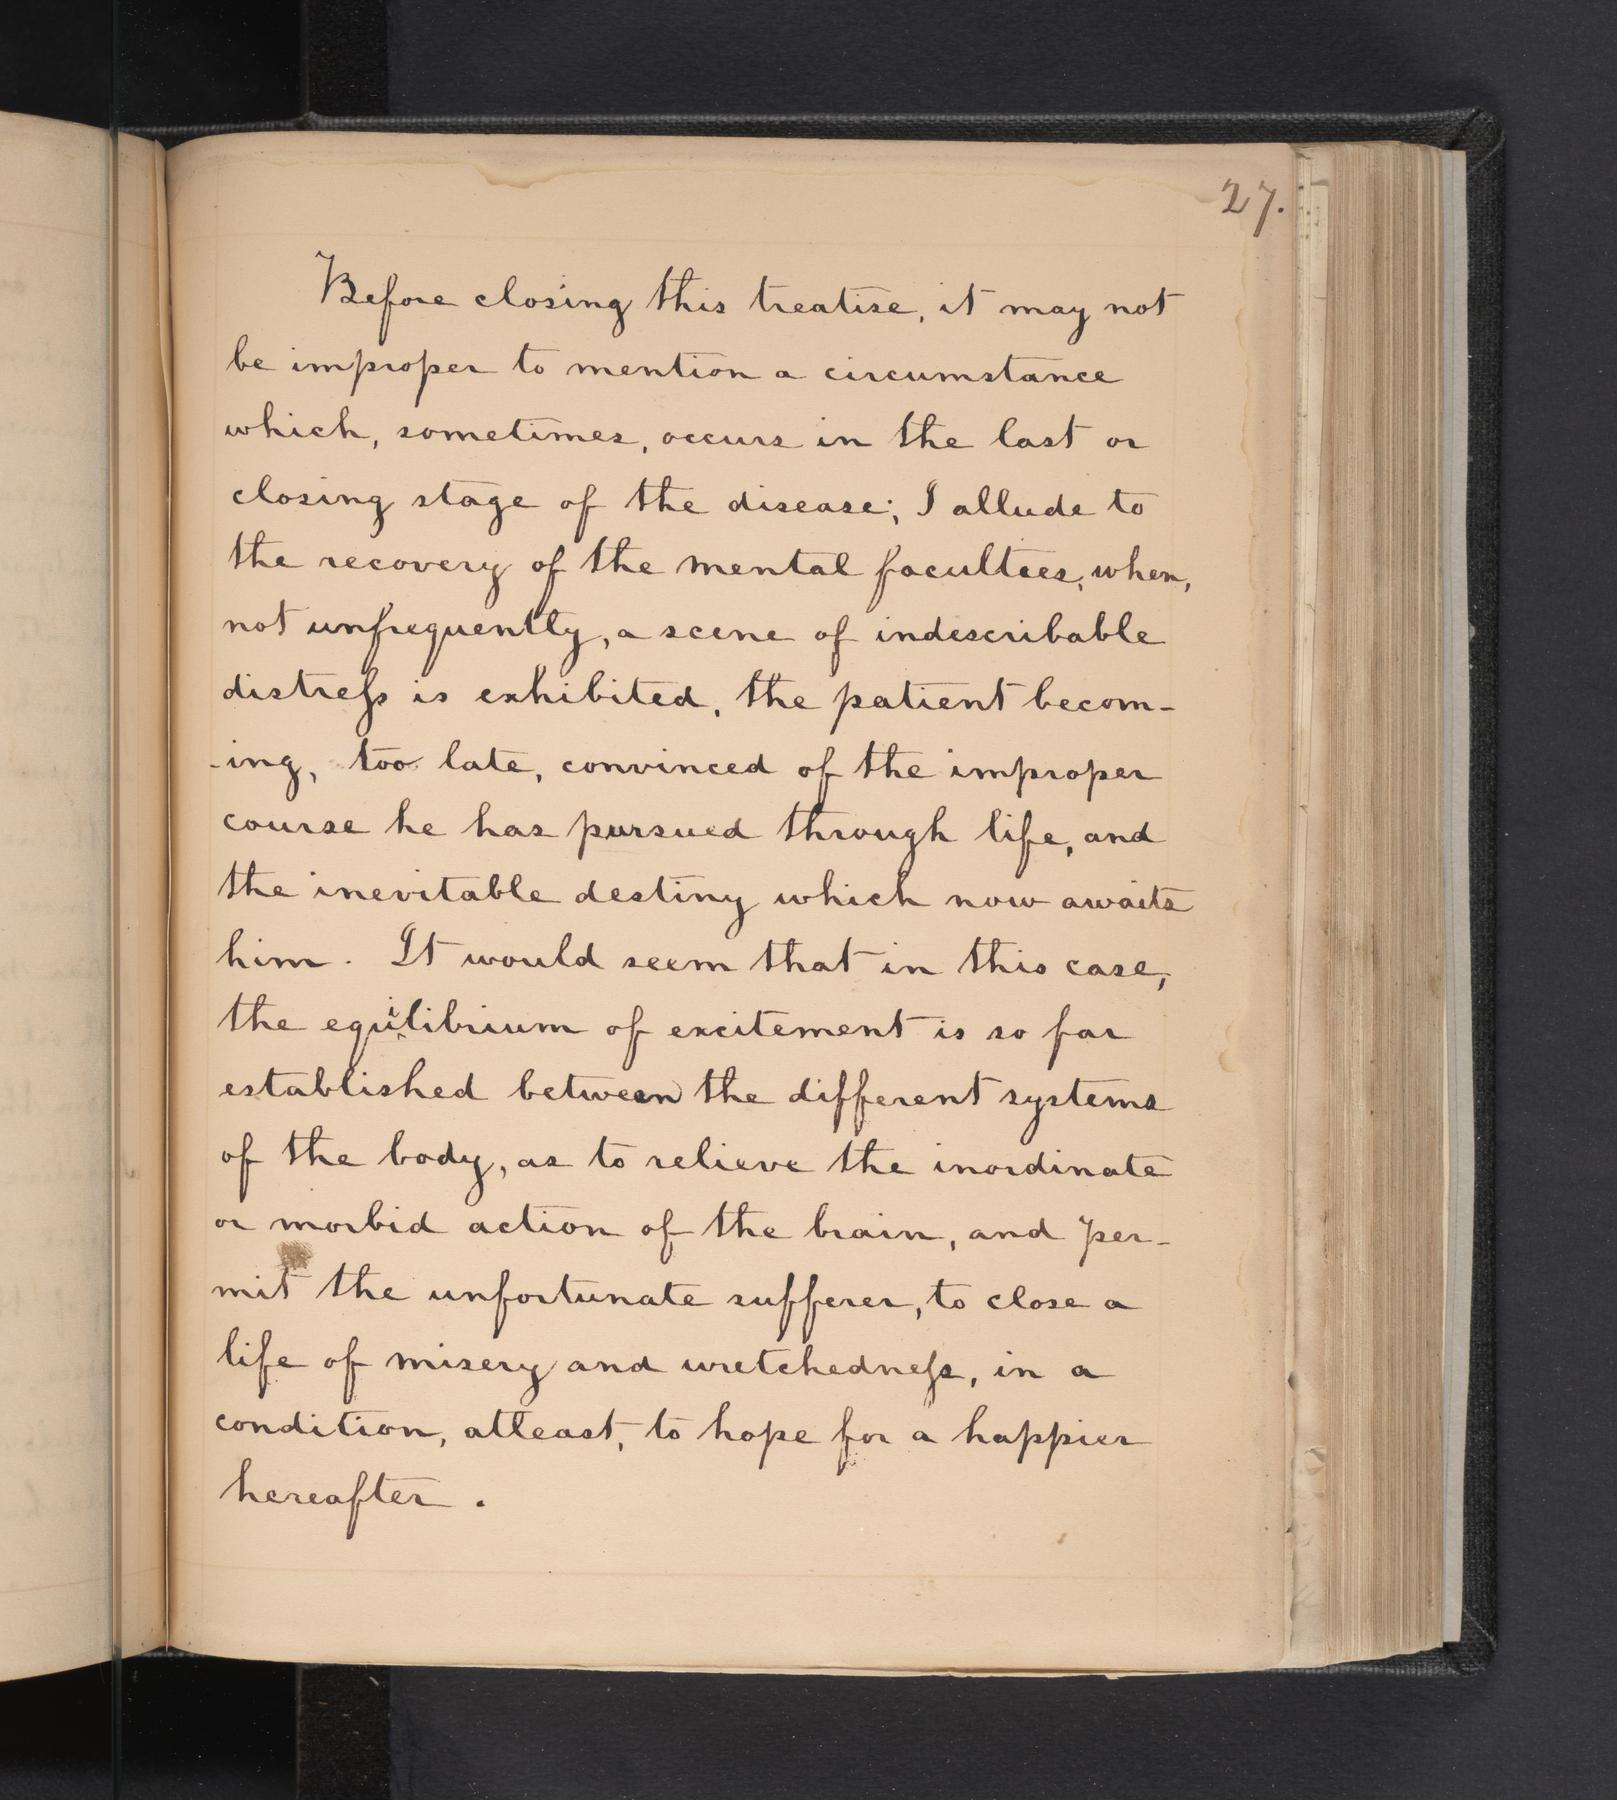 27.
Before closing this treatise, it may not
be improper to mention a circumstance
which, sometimes, occurs in the last or
closing stage of the disease; I allude to
the recovery of the mental faculties, when,
not unfrequently, a scene of indescribable
distreſs is exhibited, the patient becom-
-ing, too late, convinced of the improper
course he has pursued through life, and
the inevitable destiny which now awaits
him. It would seem that in this case,
the equilibrium of excitement is so far
established between the different systems
of the body, as to relieve the inordinate
or morbid action of the brain, and per-
mit the unfortunate sufferer, to close a
life of misery and wretchedneſs, in a
condition, atleast, to hope for a happier
hereafter.